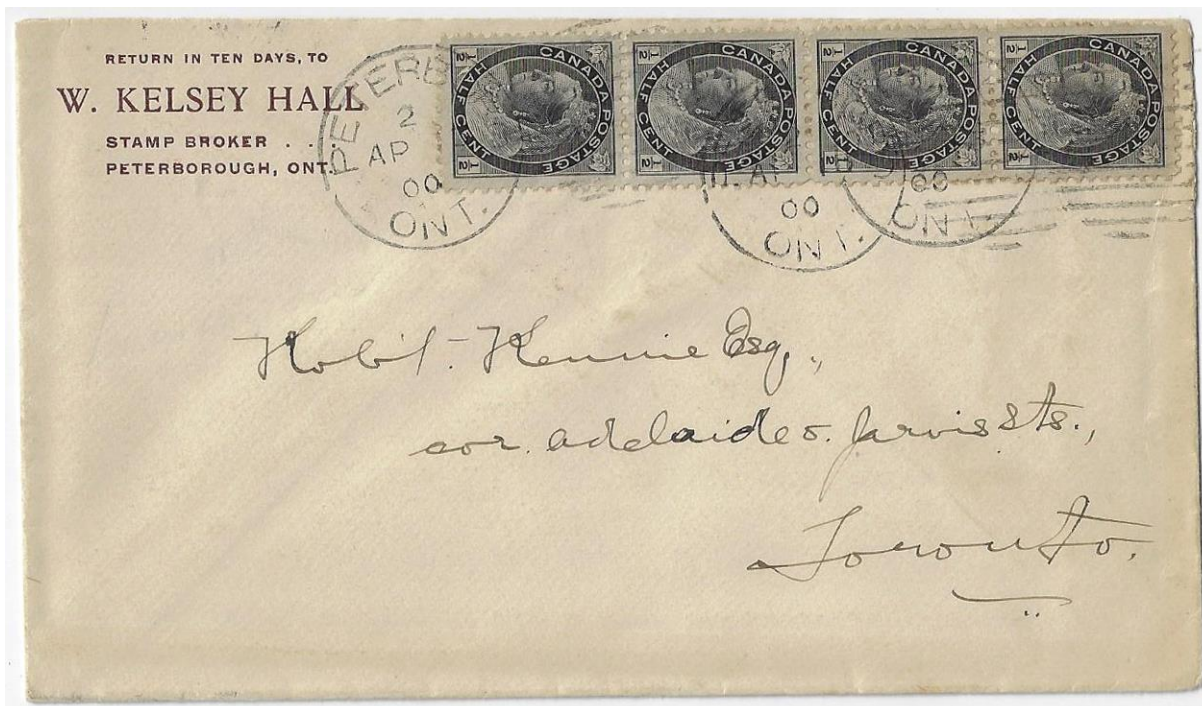 RETURN IN TEN DAYS, TO
W. KELSEY HALL
STAMP BROKER . . .
PETERBOROUGH, ONT.
PETERB
2
AP
00
ONT.
CANADA POSTAGE
HALF CENT
½ ½
CANADA POSTAGE
HALF CENT
½ ½
CANADA POSTAGE
HALF CENT
½ ½
CANADA POSTAGE
HALF CENT
½ ½
00
ONT.
00
ONT.
Robt. Rennie Esq.,
cor. Adelaide & Jarvis Sts.,
Toronto.